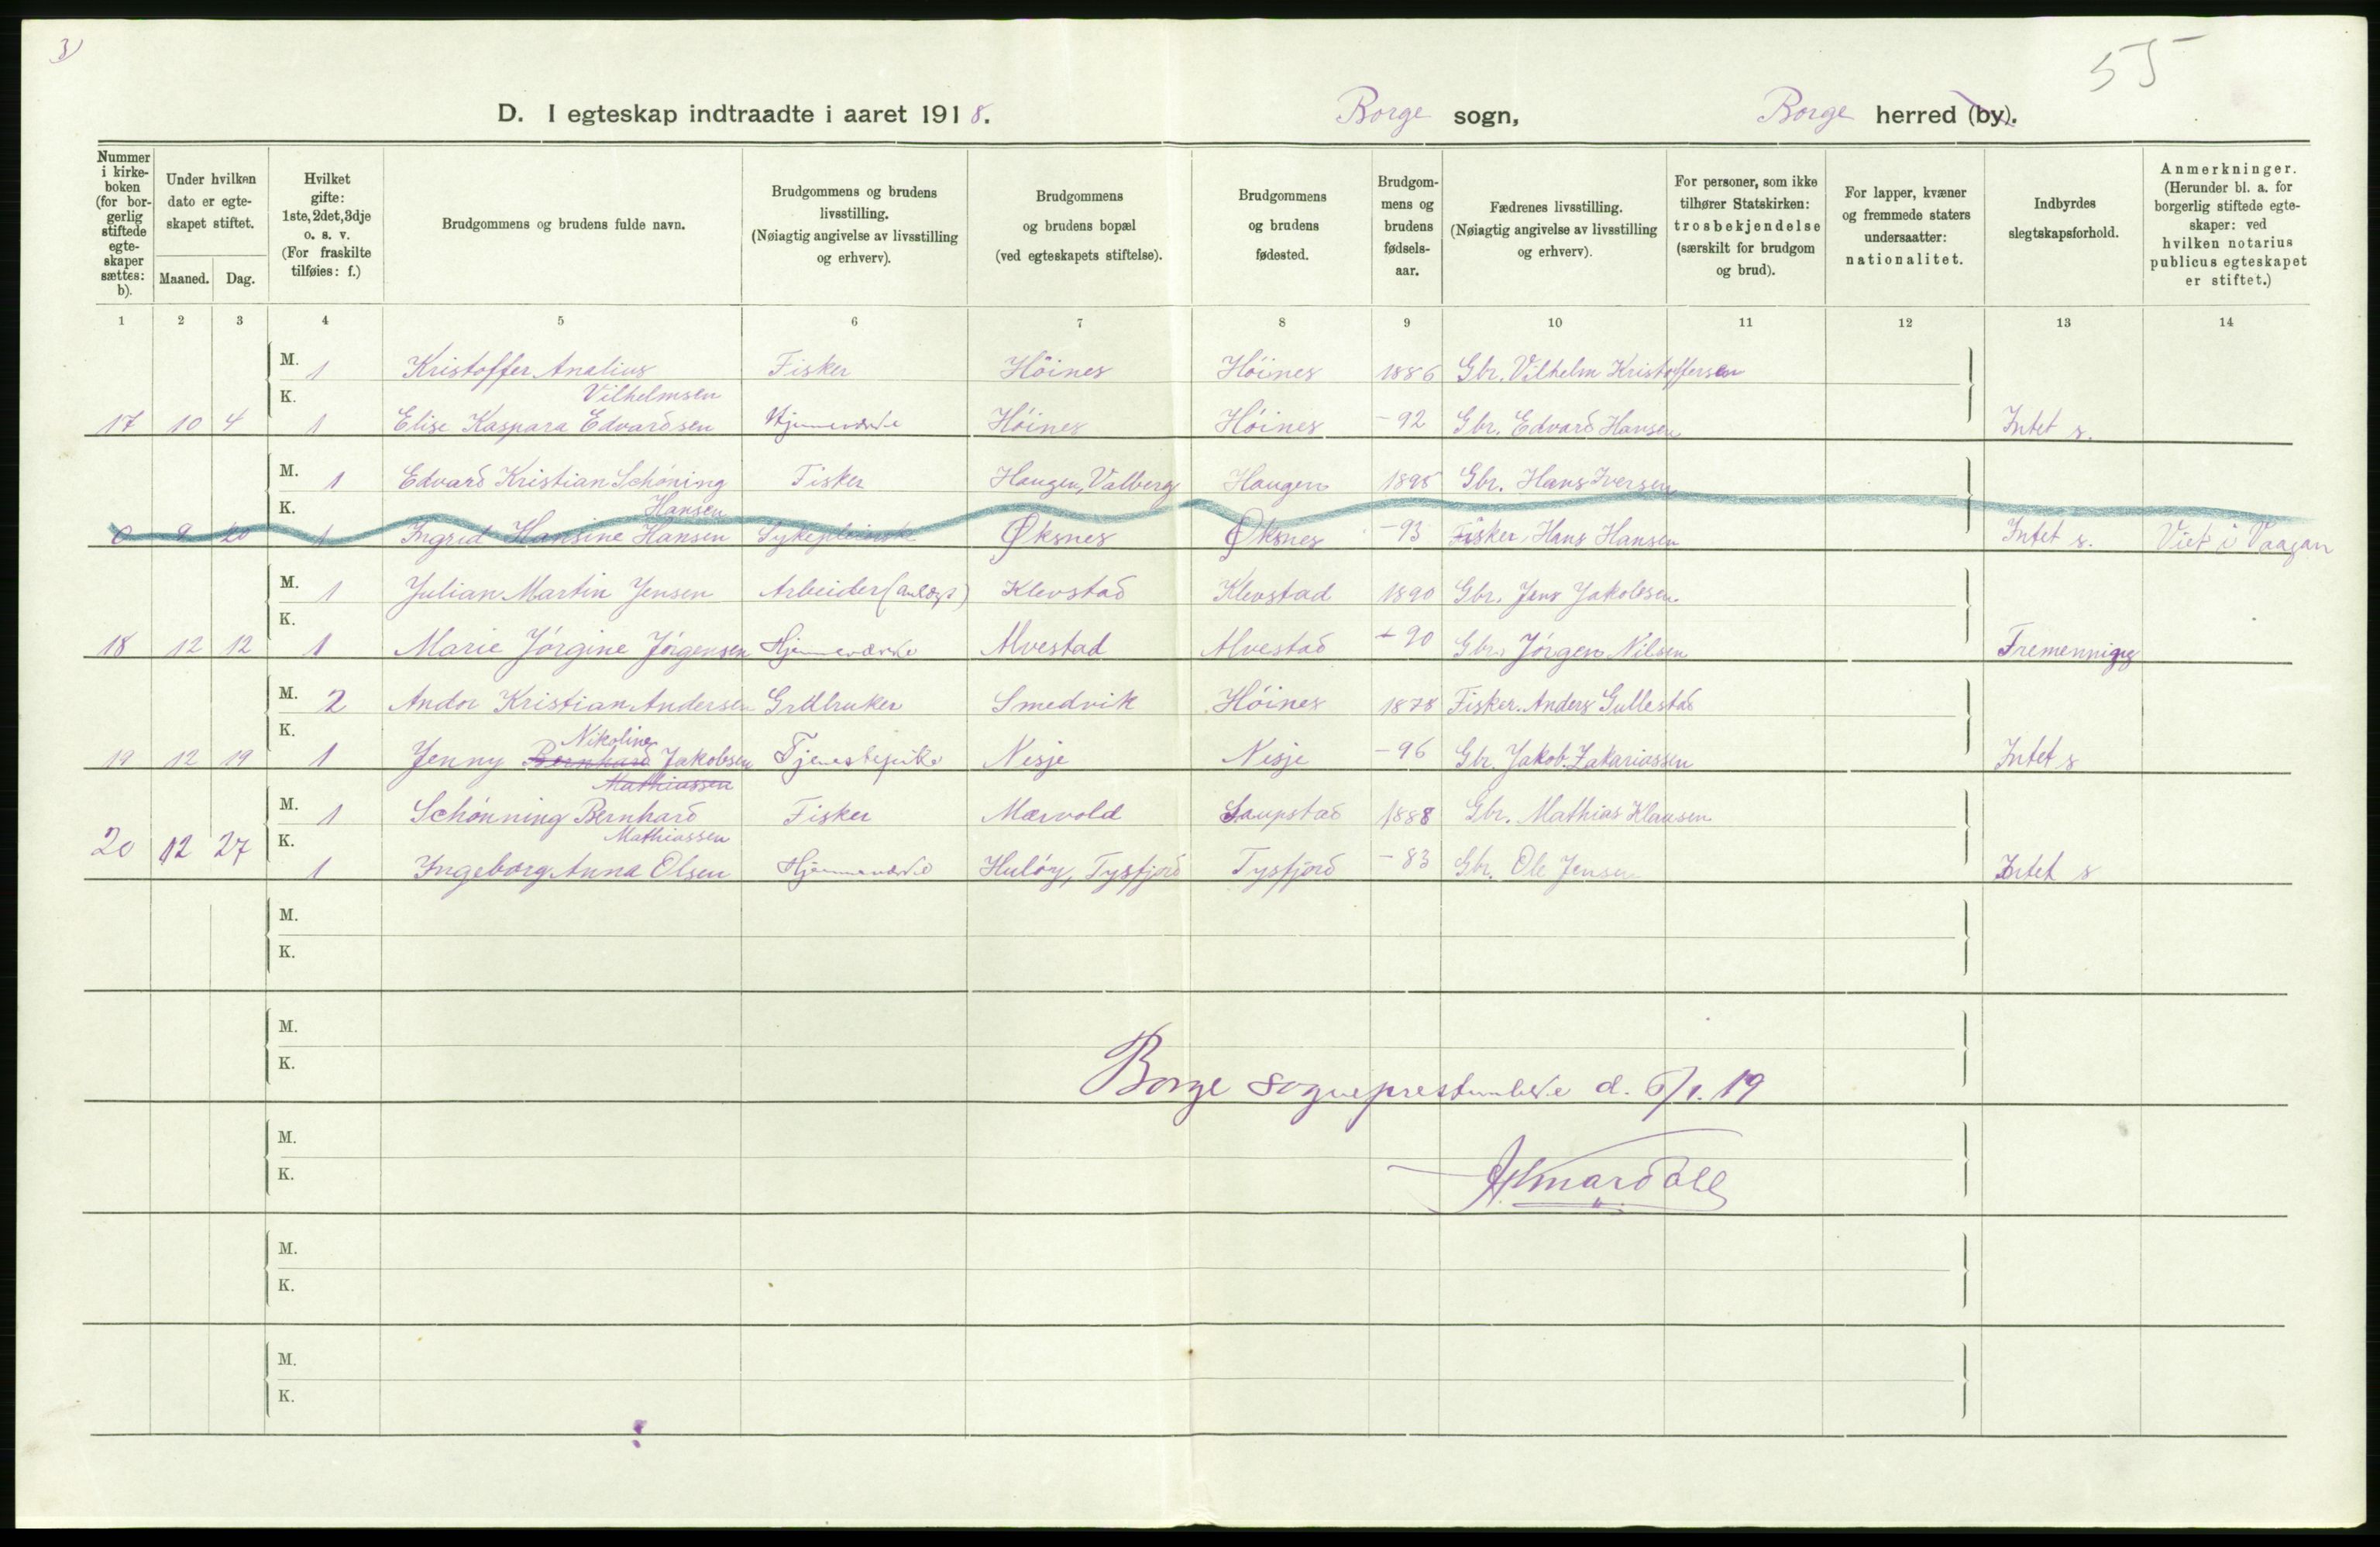 3)
55
D. I egteskap indtraadte i aaret 1918. Borge sogn, Borge herred (by).
Nummer i kirkeboken (for borgerlig stiftede egteskaper sættes: b).
Under hvilken dato er egteskapet stiftet.
Maaned. Dag.
Hvilket gifte: 1ste, 2det, 3dje o. s. v. (For fraskilte tilføies: f.)
Brudgommens og brudens fulde navn.
Brudgommens og brudens livsstilling. (Nøiagtig angivelse av livsstilling og erhverv).
Brudgommens og brudens bopæl (ved egteskapets stiftelse).
Brudgommens og brudens fødested.
Brudgommens og brudens fødselsaar.
Fædrenes livsstilling. (Nøiagtig angivelse av livsstilling og erhverv).
For personer, som ikke tilhører Statskirken: trosbekjendelse (særskilt for brudgom og brud).
For lapper, kvæner og fremmede staters undersaatter: nationalitet.
Indbyrdes slegtskapsforhold.
Anmerkninger. (Herunder bl. a. for borgerlig stiftede egteskaper: ved hvilken notarius publicus egteskapet er stiftet.)
1 2 3 4 5 6 7 8 9 10 11 12 13 14
M. 1 Kristoffer Analius Fisker Höines Höines 1886 Gbr. Vilhelm Kristoffersen
K. Vilhelmsen
17 10 4 1 Elise Kaspara Edvardsen Hjemmeværende Höines Höines -92 Gbr. Edvard Hansen Intet s.
M. 1 Edvard Kristian Schöning Fisker Haugen, Valberg Haugen 1895 Gbr. Hans Iversen
K. Hansen
0 9 20 1 Ingrid Hansine Hansen Øksnes Øksnes -93 Fisker Hans Hansen Intet s. Viet i Vaagan
M. 1 Julian Martin Jensen Arbeider (anlægs) Klevstad Klevstad 1890 Gbr. Jens Jakobsen
K.
18 12 12 1 Marie Jörgine Jörgensen Hjemmeværende Alvestad Alvestad -90 Gbr. Jörgen Nilsen Fremenning
M. 2 Andor Kristian Andersen Grdbruker Smedvik Höines 1878 Fisker. Anders Gullestad
K. Nikoline
19 12 19 1 Jenny Bernhard Jakobsen Tjenestepike Nesje Nesje -96 Gbr. Jakob Zakariassen Intet s
Mathiassen
M. 1 Schönning Bernhard Fisker Mærvold Saupstad 1888 Gbr. Mathias Klausen
K. Mathiassen
20 12 27 1 Ingeborg Anna Olsen Hjemmeværende Hulöy, Tysfjord Tysfjord -83 Gbr. Ole Jensen Intet s
M.
K.
M.
K.
Borge sogneprestembede d. 6/1. 19
M.
K.
M.
K.
M.
K.